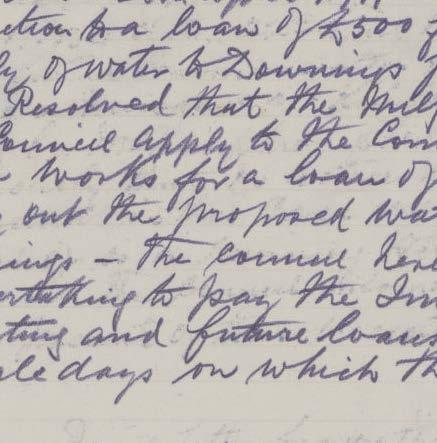 ction to a loan of £500 f
ly of water to Downings f
Resolved that the Mil
Council apply to the Com
Works for a loan of
out the proposed Wat
ings - the Council here
ertaking to pay the In
ting and future loans
le days on which th